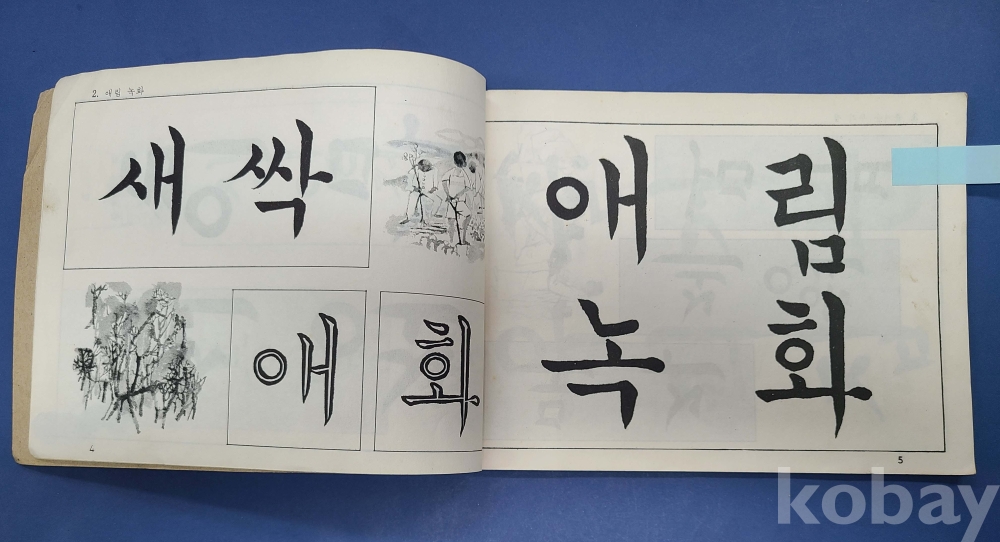 2. 애림 녹화
새 싹
애 화
4
애 림
녹 화
5
kobay